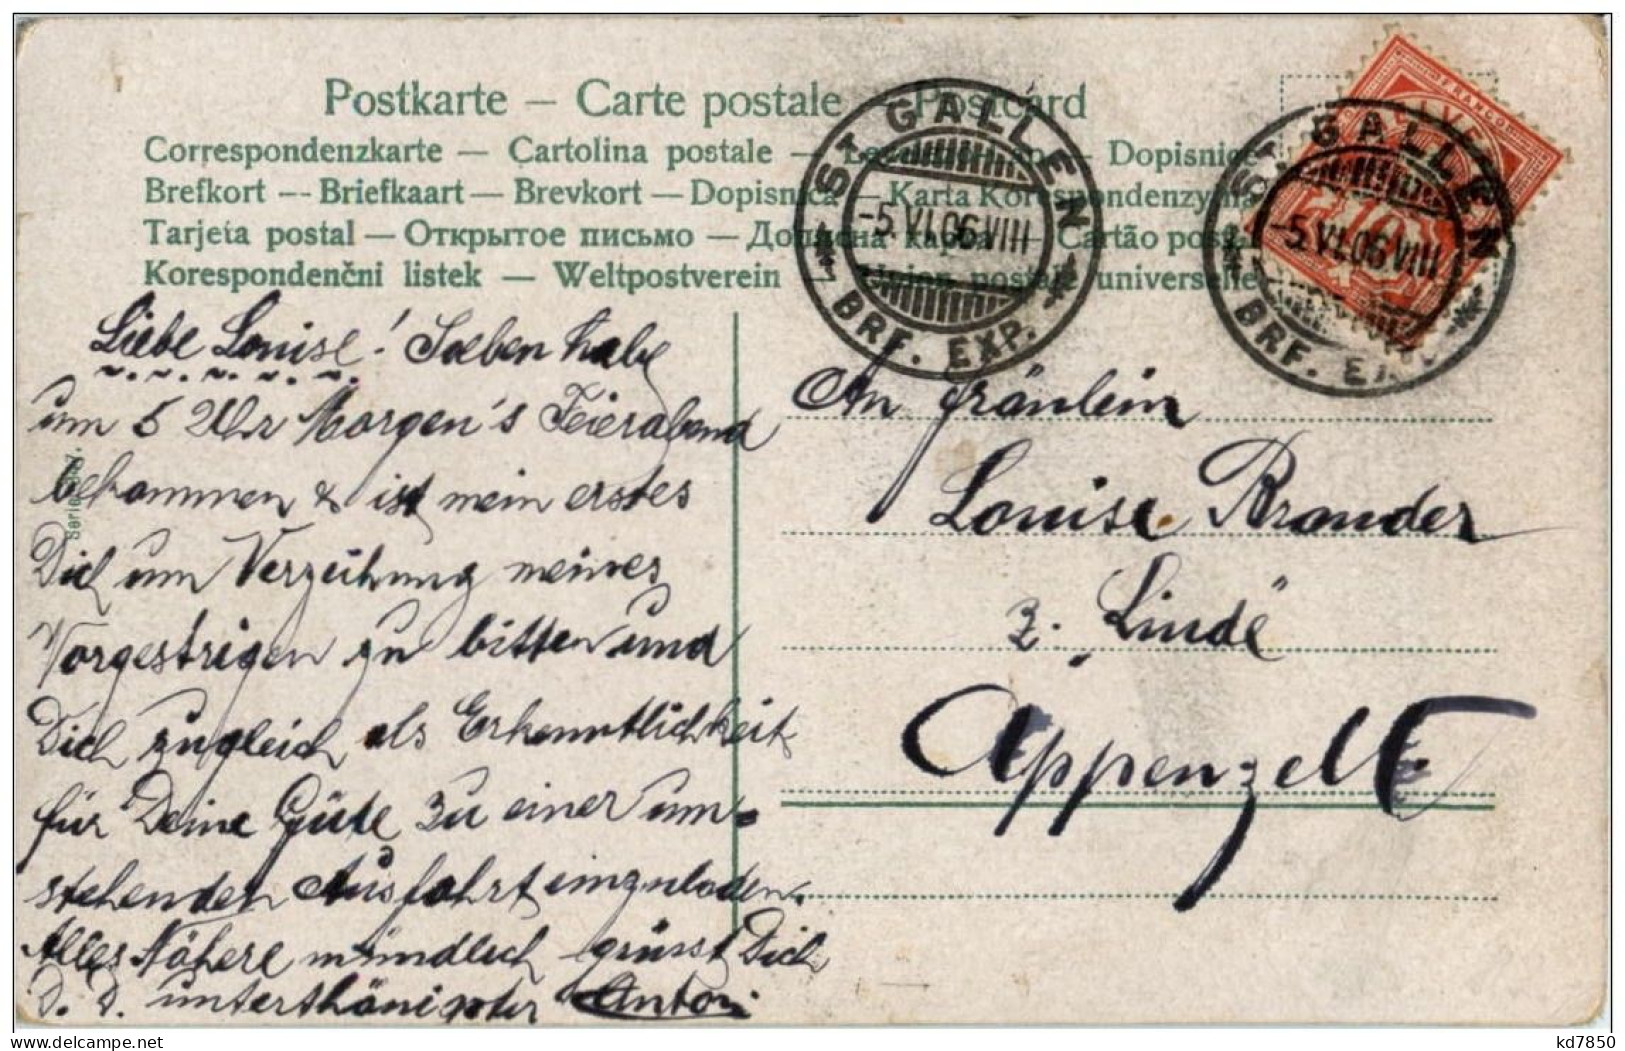 Postkarte — Carte postale — Postcard
Correspondenzkarte — Cartolina postale — — Dopisnice
Brefkort -- Briefkaart — Brevkort — Dopisnica — Karta Korespondenzyjna
Tarjeta postal — Открытое письмо — Дописна карта — Cartão postal
Korespondenční listek — Weltpostverein — Union postale universelle
ST GALLEN
-5.VI.06.VIII
BRF. EXP.
ST GALLEN
-5.VI.06.VIII
BRF. EXP.
FRANCO
HELVETIA
10
Serie
Liebe Louise! Soeben habe
um 5 Uhr Morgen's Feierabend
bekommen & ist mein erstes
Dich um Verzeihung meines
Vorgestrigen zu bitten und
Dich zugleich als Erkenntlichkeit
für Deine Güte zu einer um=
stehenden Ausfahrt einzuladen.
Alles Nähere mündlich grüsst Dich
D. D. unterthänigster Anton
An Fräulein
Louise Brander
z. „Linde"
Appenzell.
kd7850